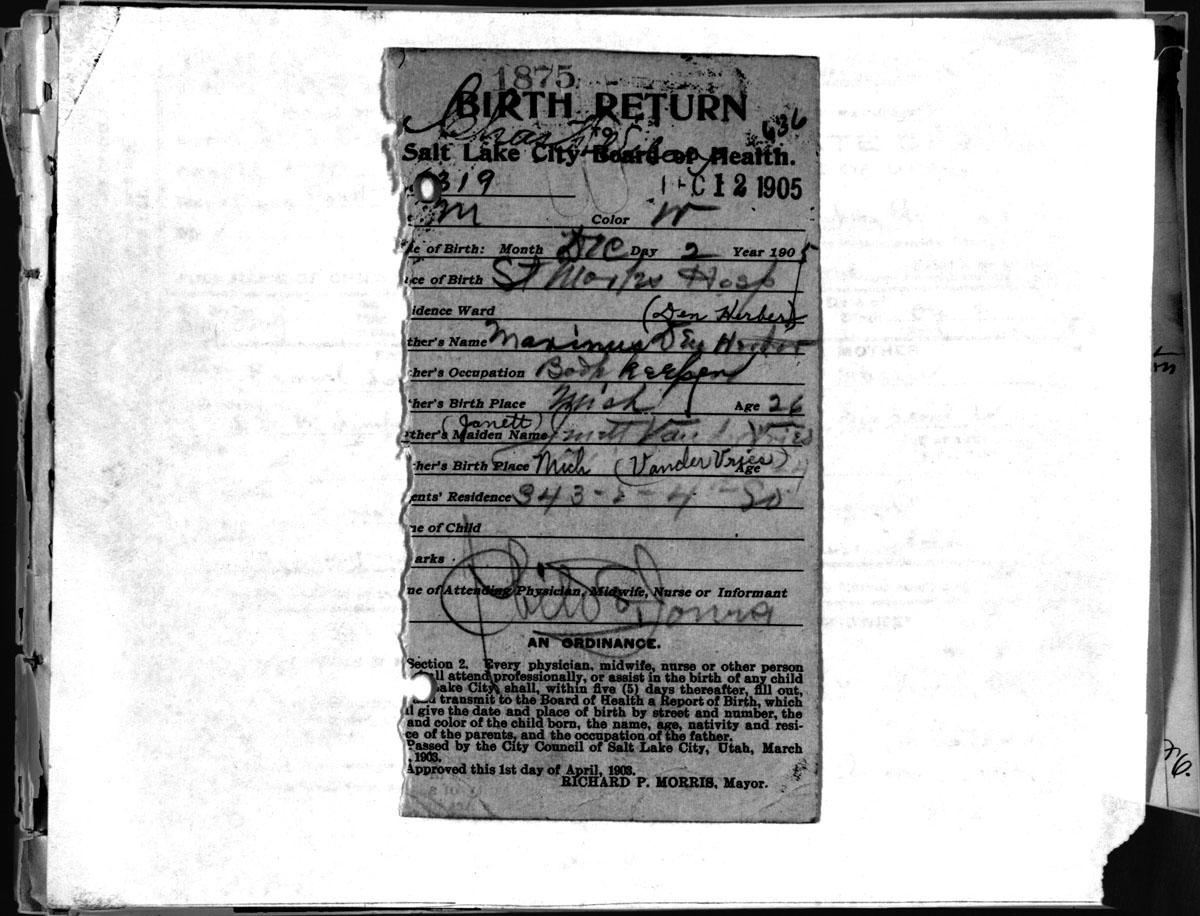 1875
BIRTH RETURN
636
Salt Lake City Board of Health.
319 DEC 12 1905
M Color W
te of Birth: Month Dec Day 2 Year 1905
ace of Birth St Marks Hosp
idence Ward (Den Herber)
ther's Name Marinus Den Herber
ther's Occupation Book Keeper
ther's Birth Place Mich Age 26
(Janett)
ther's Maiden Name Van der Vries
ther's Birth Place Mich (Vander Vries) Age
ents' Residence 343-E-4th So
ne of Child
arks
ne of Attending Physician, Midwife, Nurse or Informant
AN ORDINANCE.
Section 2. Every physician, midwife, nurse or other person
all attend professionally, or assist in the birth of any child
Lake City, shall, within five (5) days thereafter, fill out,
and transmit to the Board of Health a Report of Birth, which
ll give the date and place of birth by street and number, the
and color of the child born, the name, age, nativity and resi-
ce of the parents, and the occupation of the father.
Passed by the City Council of Salt Lake City, Utah, March
, 1903.
Approved this 1st day of April, 1903.
RICHARD P. MORRIS, Mayor.